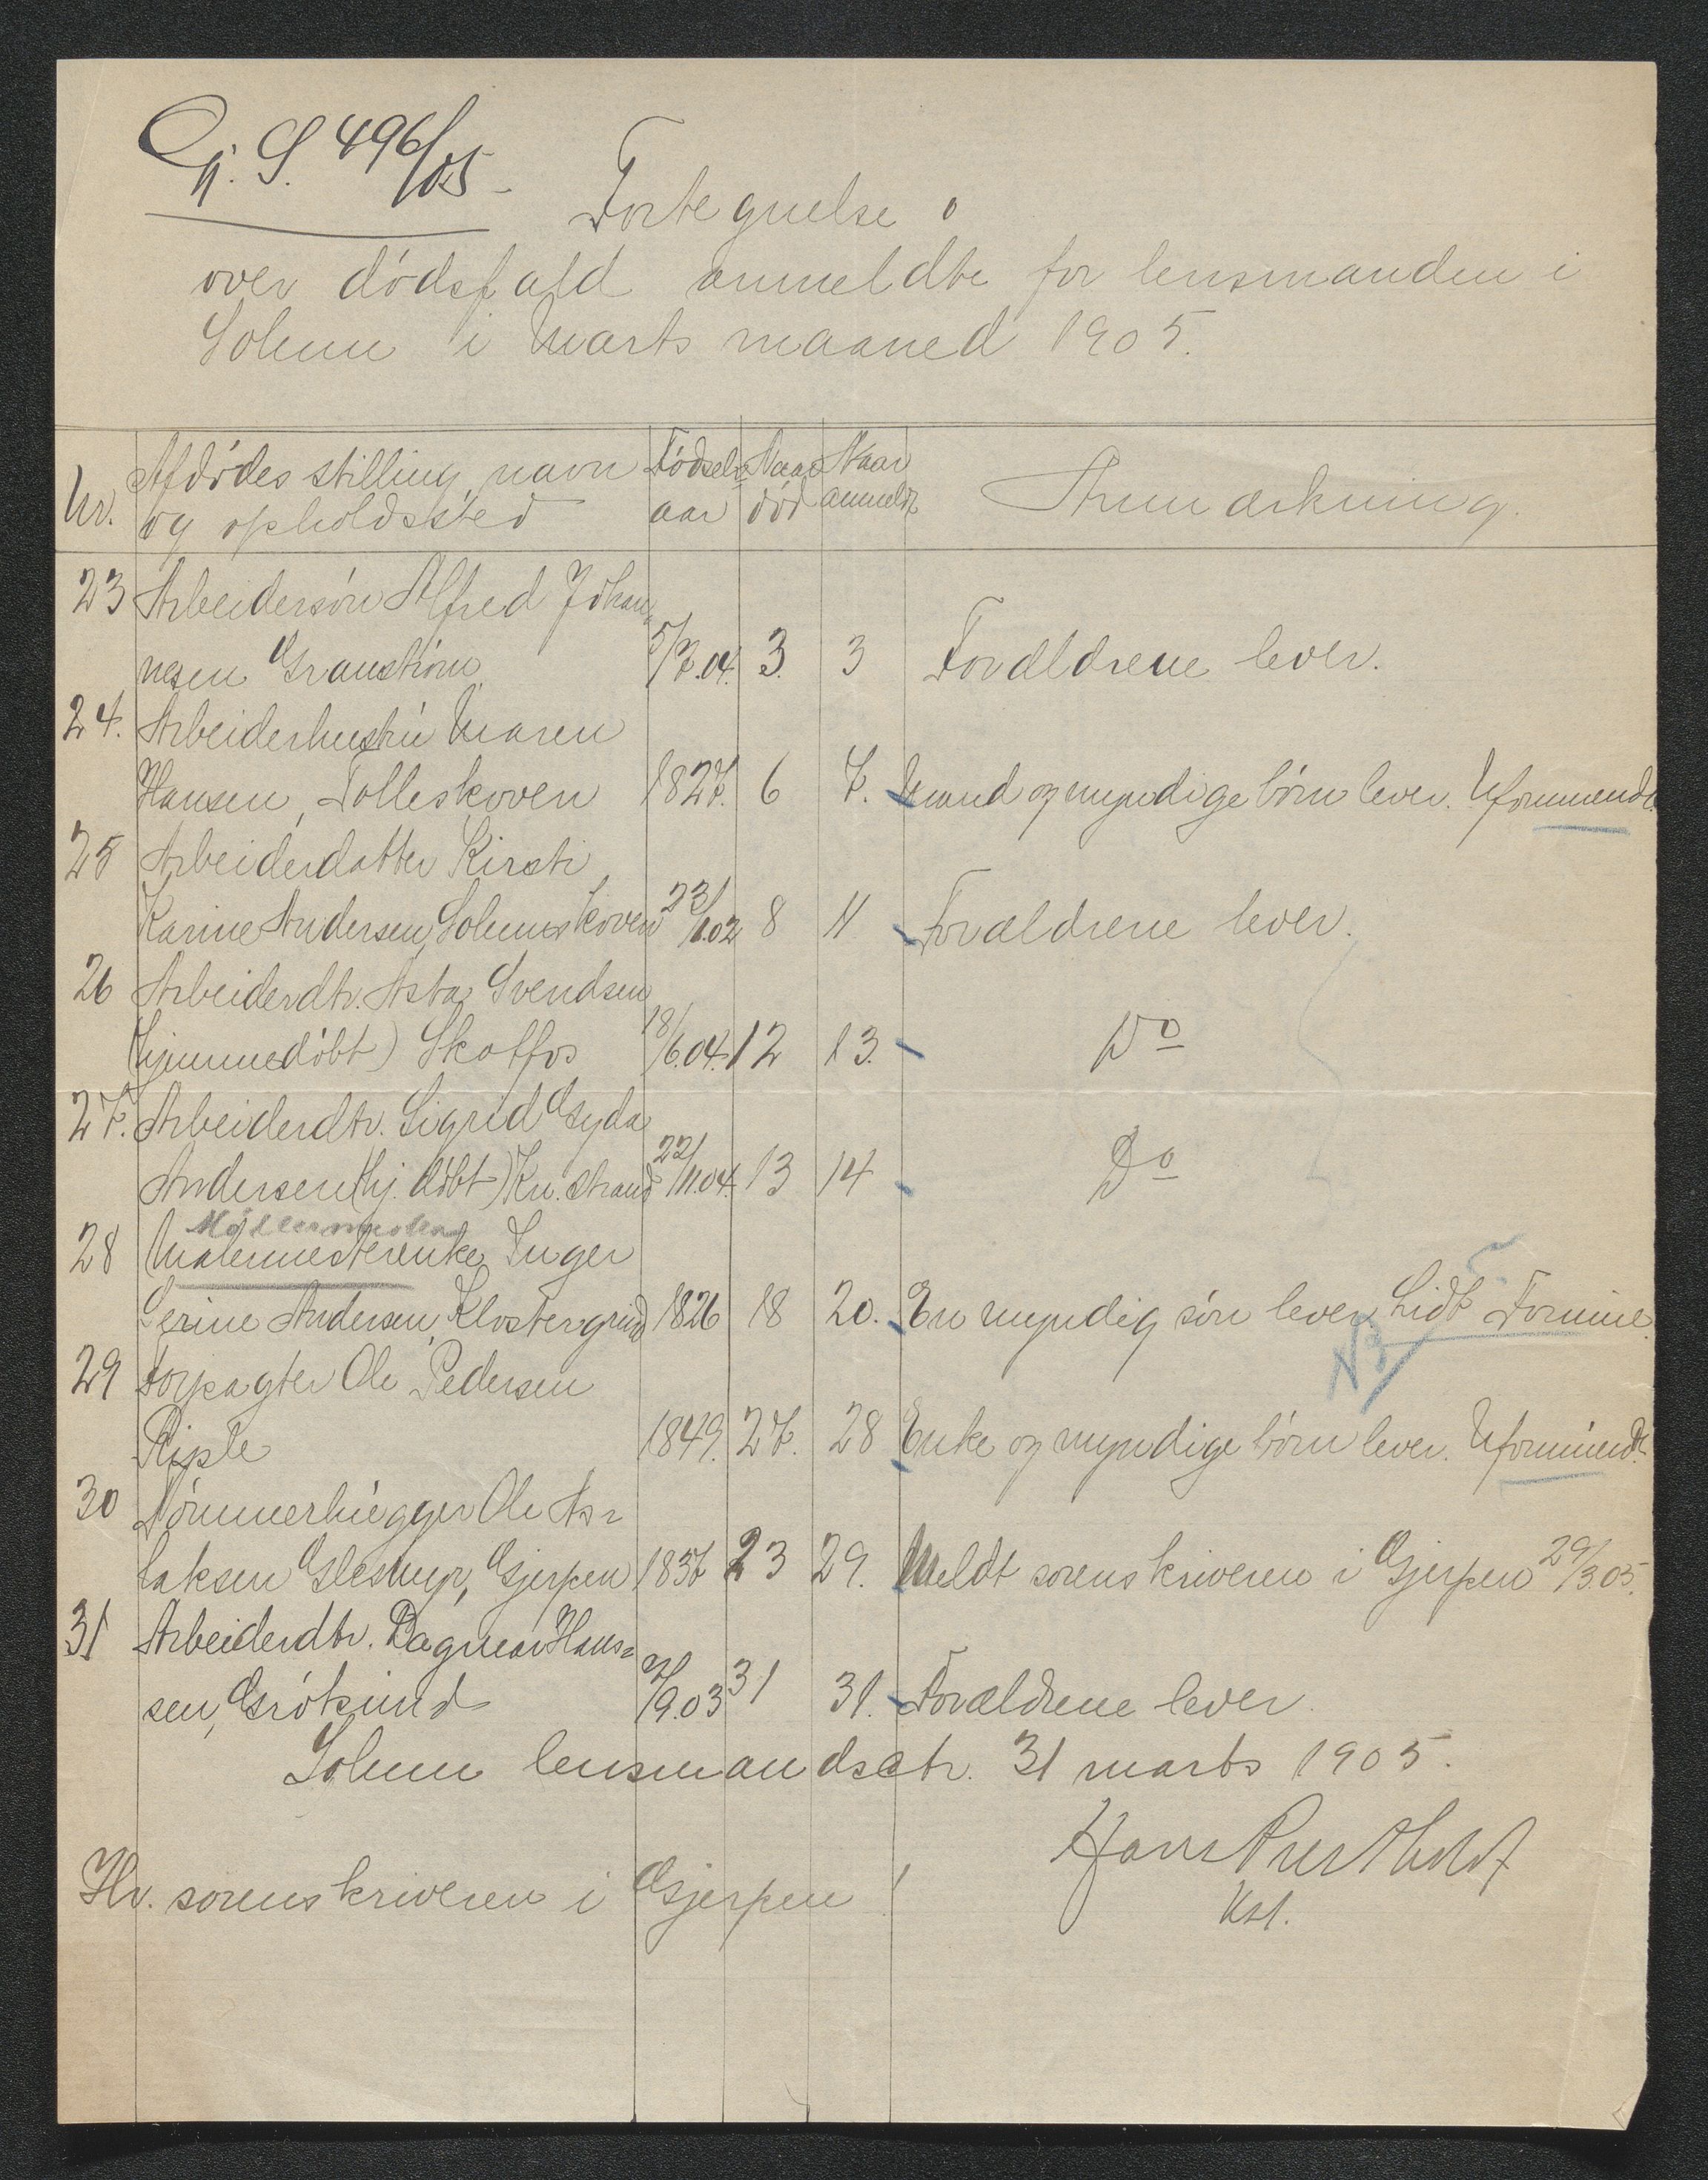 Gj. S. 496/05
Fortegnelse
over dödsfald anmeldte for lensmanden i
Solum i Marts maaned 1905.
Nr. Afdödes stilling navn og opholdssted Födsels aar Naar död Naar anmeldt Anmærkning.
23 Arbeidersön Alfred Johan-
nesen 5/7.04. 3. 3 Forældrene lever.
24. Arbeiderhustru Maren
Hansen, Folleskoven 1827. 6 7. Mand og myndige börn lever. Uformuende.
25 Arbeiderdatter Kirsti
Karine Andersen, Solumskoven 23/1.02 8 11 Forældrene lever.
26 Arbeiderdtr. Asta Svendsen
(hjemmedöbt) Skotfos 18/6.04. 12 13. Do
27. Arbeiderdtr. Sigrid Gyda
Andersen (hj. döbt) Kn. strand 22/11.04. 13 14 Do
Möllermester
28 Malermesterenke Inger
Serine Andersen, Klostergrund 1826 18 20. En myndig sön lever. Lidt Formue.
29 Forpagter Ole Pedersen
Riple 1849. 27. 28 Enke og myndige börn lever. Uformuende.
30 Tömmerhugger Ole As-
laksen Glesmyr, Gjerpen 1837 23 29. Meldt sorenskriveren i Gjerpen 29/3.05.
31 Arbeiderdtr. Dagmar Hans-
sen, Grösund 7/9.03 31 31. Forældrene lever.
Solum lensmandsktr. 31 marts 1905.
Hv. sorenskriveren i Gjerpen!
Kst.